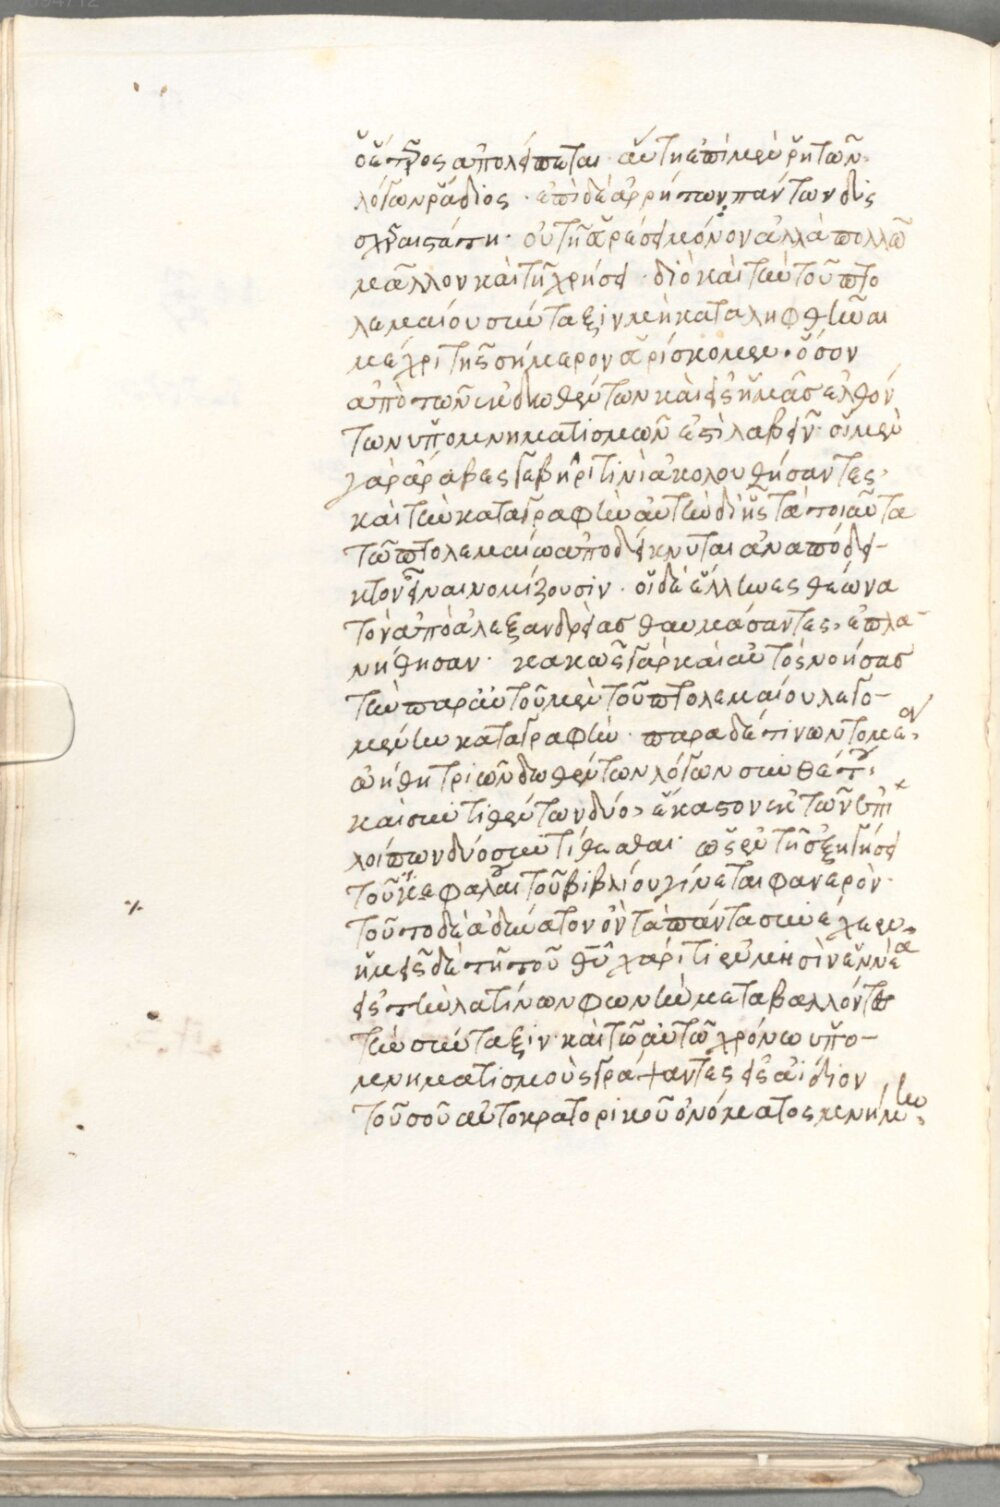 ὁ ἕτερος ἀπολείπεται· αὕτη ἐπὶ μὲν ῥητῶν
λόγων ῥάδιος· ἐπὶ δὲ ἀρρήτων πάντων δυσ
χερεστάτη· οὐ τῇ εὑρέσει μόνον ἀλλὰ πολλῶ
μᾶλλον καὶ τῇ χρήσει· διὸ καὶ τὴν τοῦ πτο
λεμαίου σύνταξιν μὴ καταληφθῆναι
μέχρι τῆς σήμερον εὑρίσκομεν· ὅσον
ἀπὸ τῶν ἐκδοθέντων καὶ εἰς ἡμᾶς ἐλθόν
των ὑπομνηματισμῶν ἐστὶ λαβεῖν· οἱ μὲν
γὰρ ἄραβες γεβηρί τινι ἀκολουθήσαντες,
καὶ τὴν καταγραφὴν αὐτὴν δι' ἧς τὰ τοιαῦτα
τῶ πτολεμαίω ἀποδείκνυται ἀναπόδει-
κτον εἶναι νομίζουσιν· οἱ δὲ ἕλληνες θέωνα
τὸν ἀπὸ ἀλεξανδρείας θαυμάσαντες, ἐπλα-
νήθησαν· κακῶς γὰρ καὶ αὐτὸς νοήσας
τὴν παρ' αὐτοῦ μὲν τοῦ πτολεμαίου λεγο-
μένην καταγραφὴν· παρὰ δέ τινων τομέα,
ὠήθη τριῶν δοθέντων λόγων συνθέτου,
καὶ συντιθέντων δύο, ἕκαστον ἐκ τῶν ἐπι
λοίπων δύο συντίθεσθαι· ὡς ἐν τῇ ἐξηγήσει
τοῦ κεφαλαίου τοῦ βιβλίου γίνεται φανερὸν·
τοῦτο δὲ ἀδύνατον ὂν τὰ πάντα συνέχεεν·
ἡμεῖς δὲ τῇ τοῦ θυ χάριτι ἐν μησὶν ἐννέα
εἰς τὴν λατίνων φωνὴν μεταβαλλόντες
τὴν σύνταξιν· καὶ τῶ αὐτῶ χρόνω ὑπο-
μνηματισμοὺς γράψαντες εἰς ἀΐδιον
τοῦ σοῦ αὐτοκρατορικοῦ ὀνόματος μνήμην,